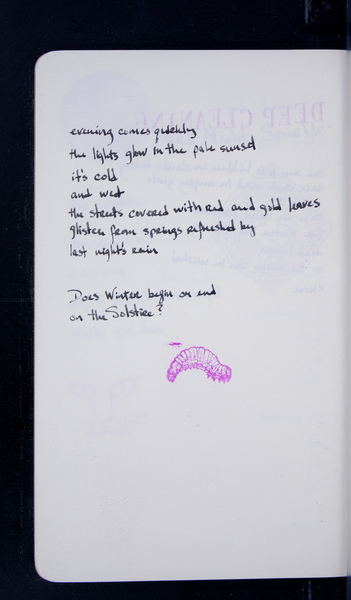 evening comes quickly
the lights glow in the pale sunset
it's cold
and wet
the streets covered with red and gold leaves
glisten from springs refreshed by
last night's rain
Does Winter begin or end
on the Solstice?
DEEP CLEANING